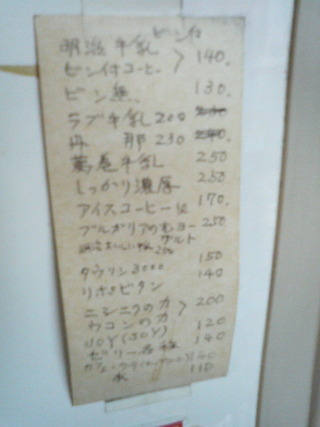 ビン付
明治牛乳
ビン付コーヒー > 140.
ビン無. 130.
ラブ牛乳 200
丹 那 230
萬巻牛乳 250
しっかり濃厚 250
アイスコーヒー 170.
ブルガリアのむヨー 250
グルト
タウリン3000 150
リポビタン 140
ニンニクの力
ウコンの力 > 200
JOY(JOY) 120
ゼリー各種 140
140
水 110